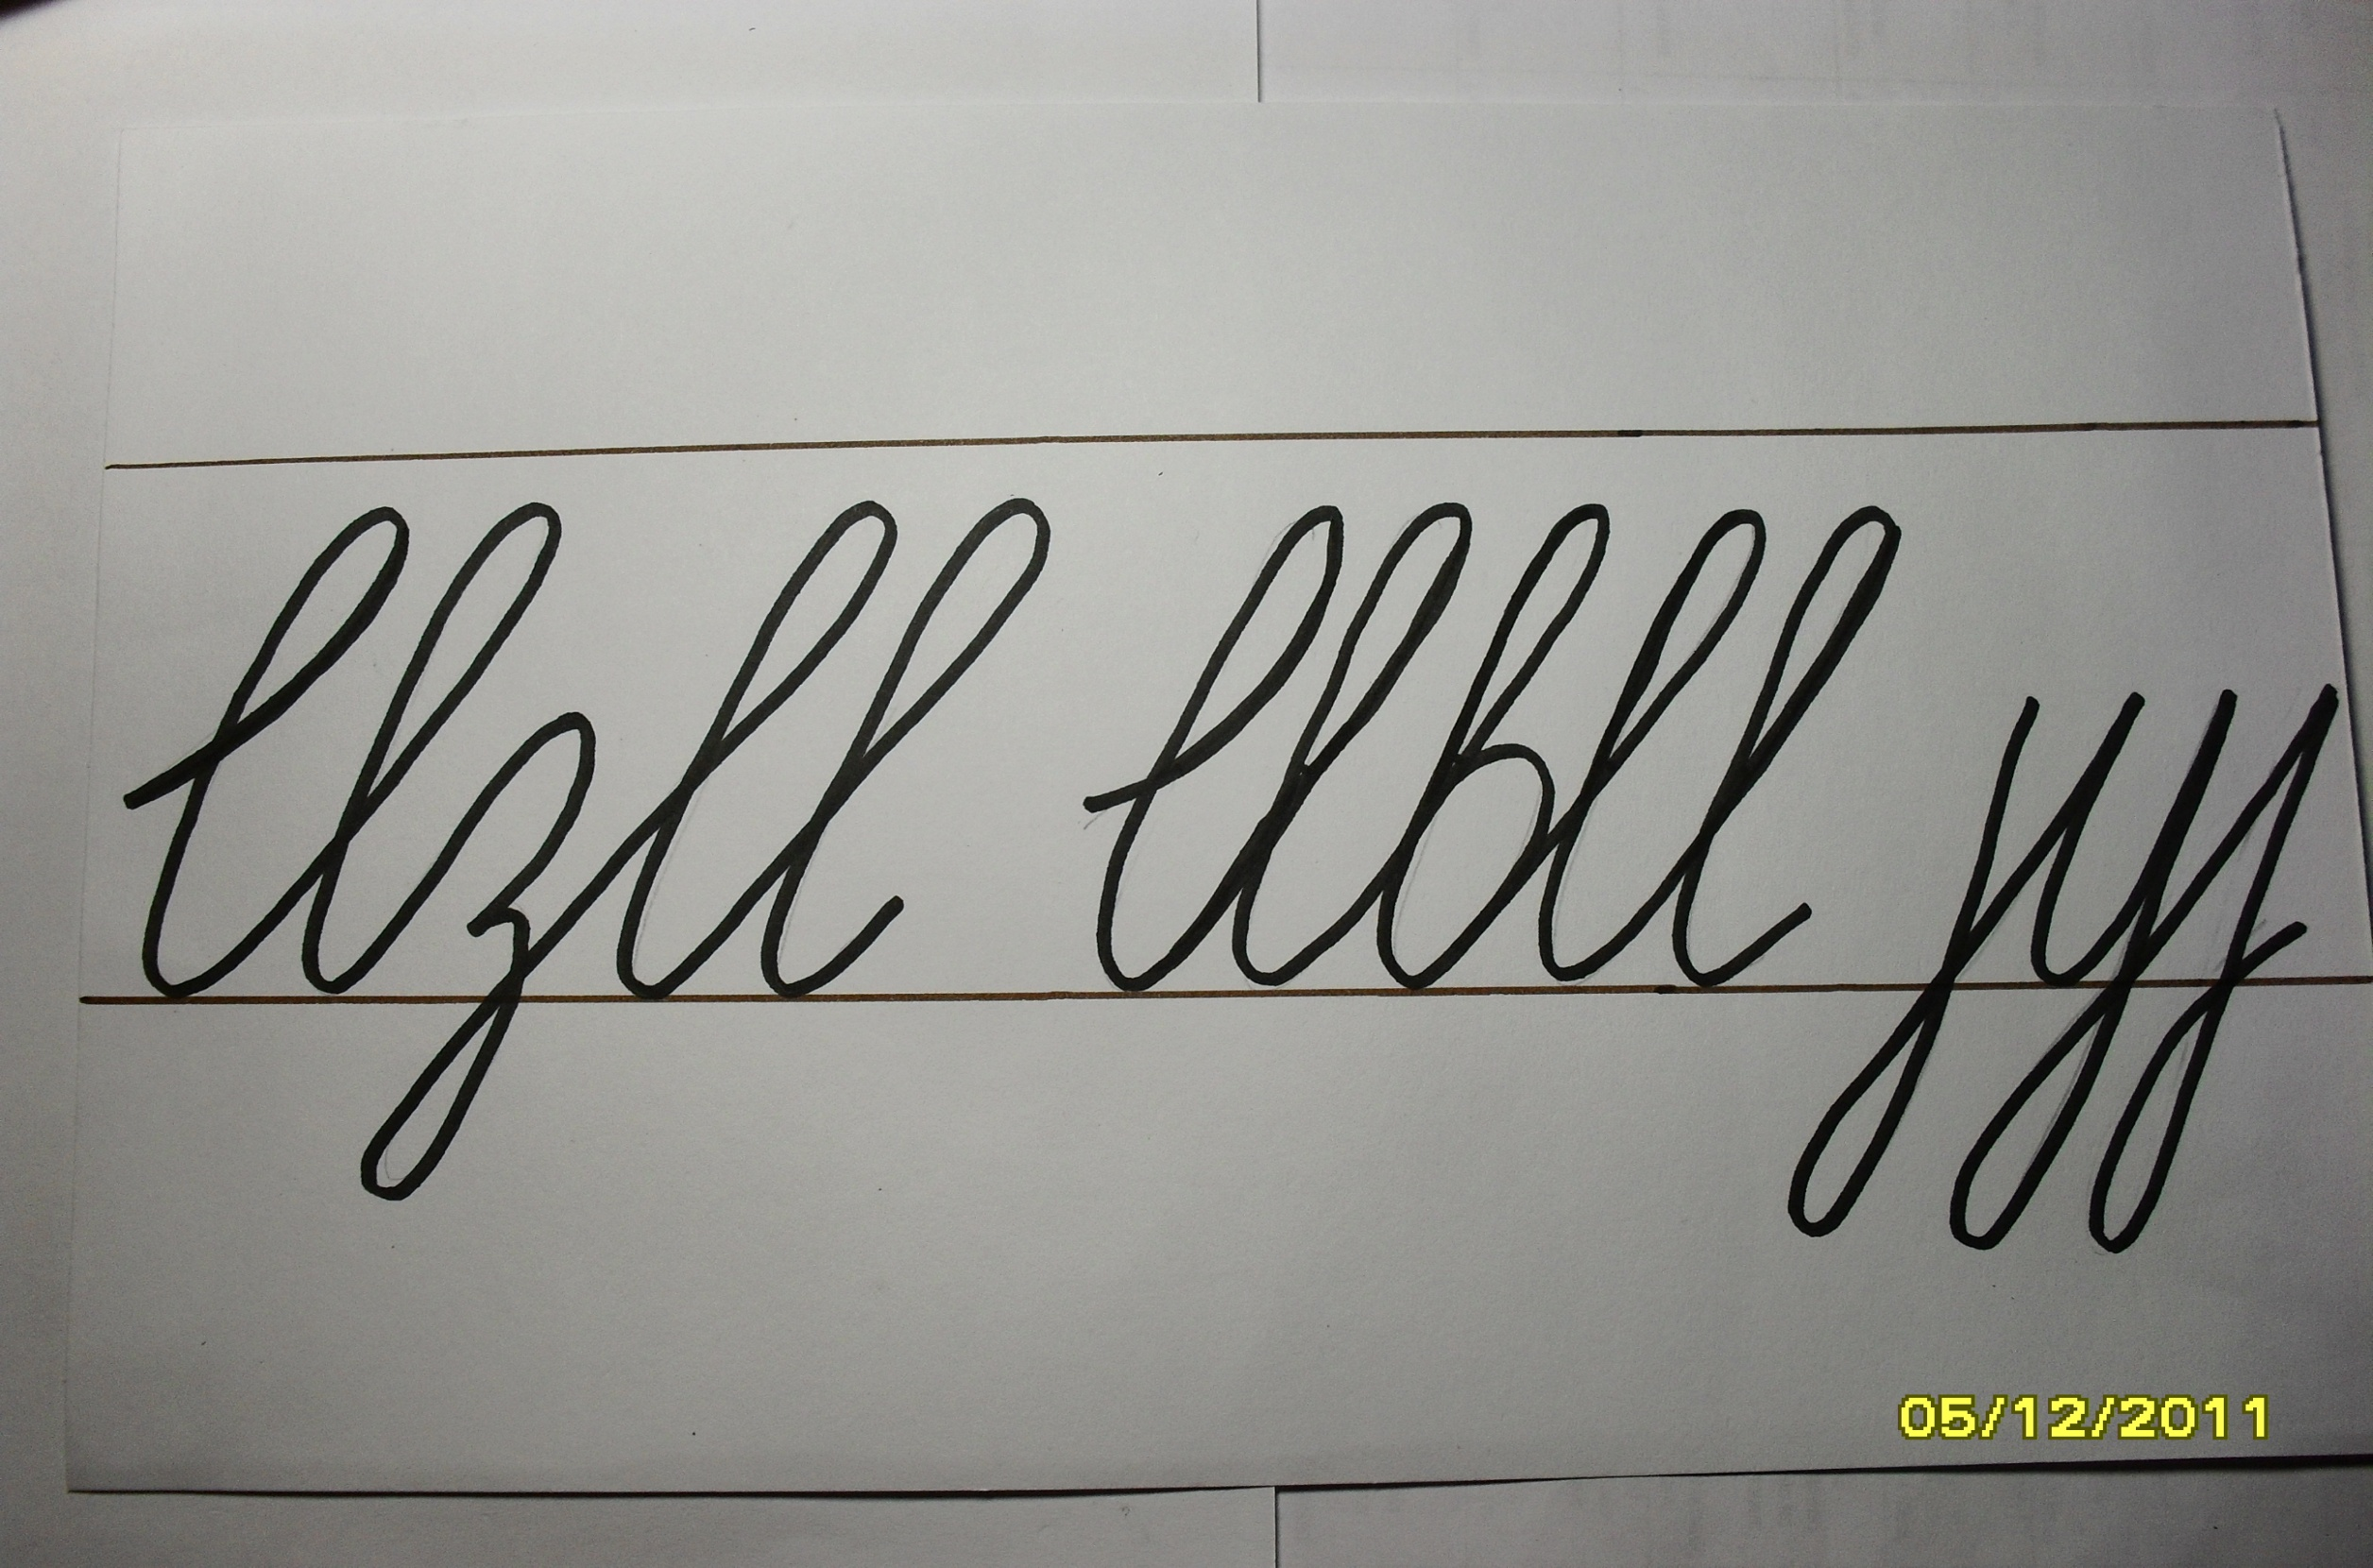 llzll llbll jyj
05/12/2011